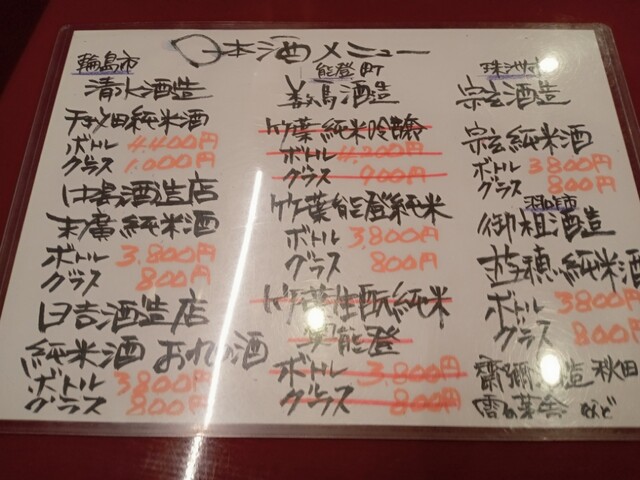 日本酒メニュー
輪島市
清水酒造
千枚田純米酒
ボトル 4,400円
グラス 1,000円
白藤酒造店
末廣純米酒
ボトル 3,800円
グラス 800円
日吉酒造店
純米酒 おれの酒
ボトル 3800円
グラス 800円
能登町
数馬酒造
竹葉純米吟醸
ボトル 4,200円
グラス 900円
竹葉能登純米
ボトル 3,800円
グラス 800円
竹葉生酛純米
奥能登
ボトル 3,800円
グラス 800円
珠洲市
宗玄酒造
宗玄純米酒
ボトル 3800円
グラス 800円
羽咋市
御祖酒造
遊穂純米酒
ボトル 3800円
グラス 800円
酒造 秋田
など